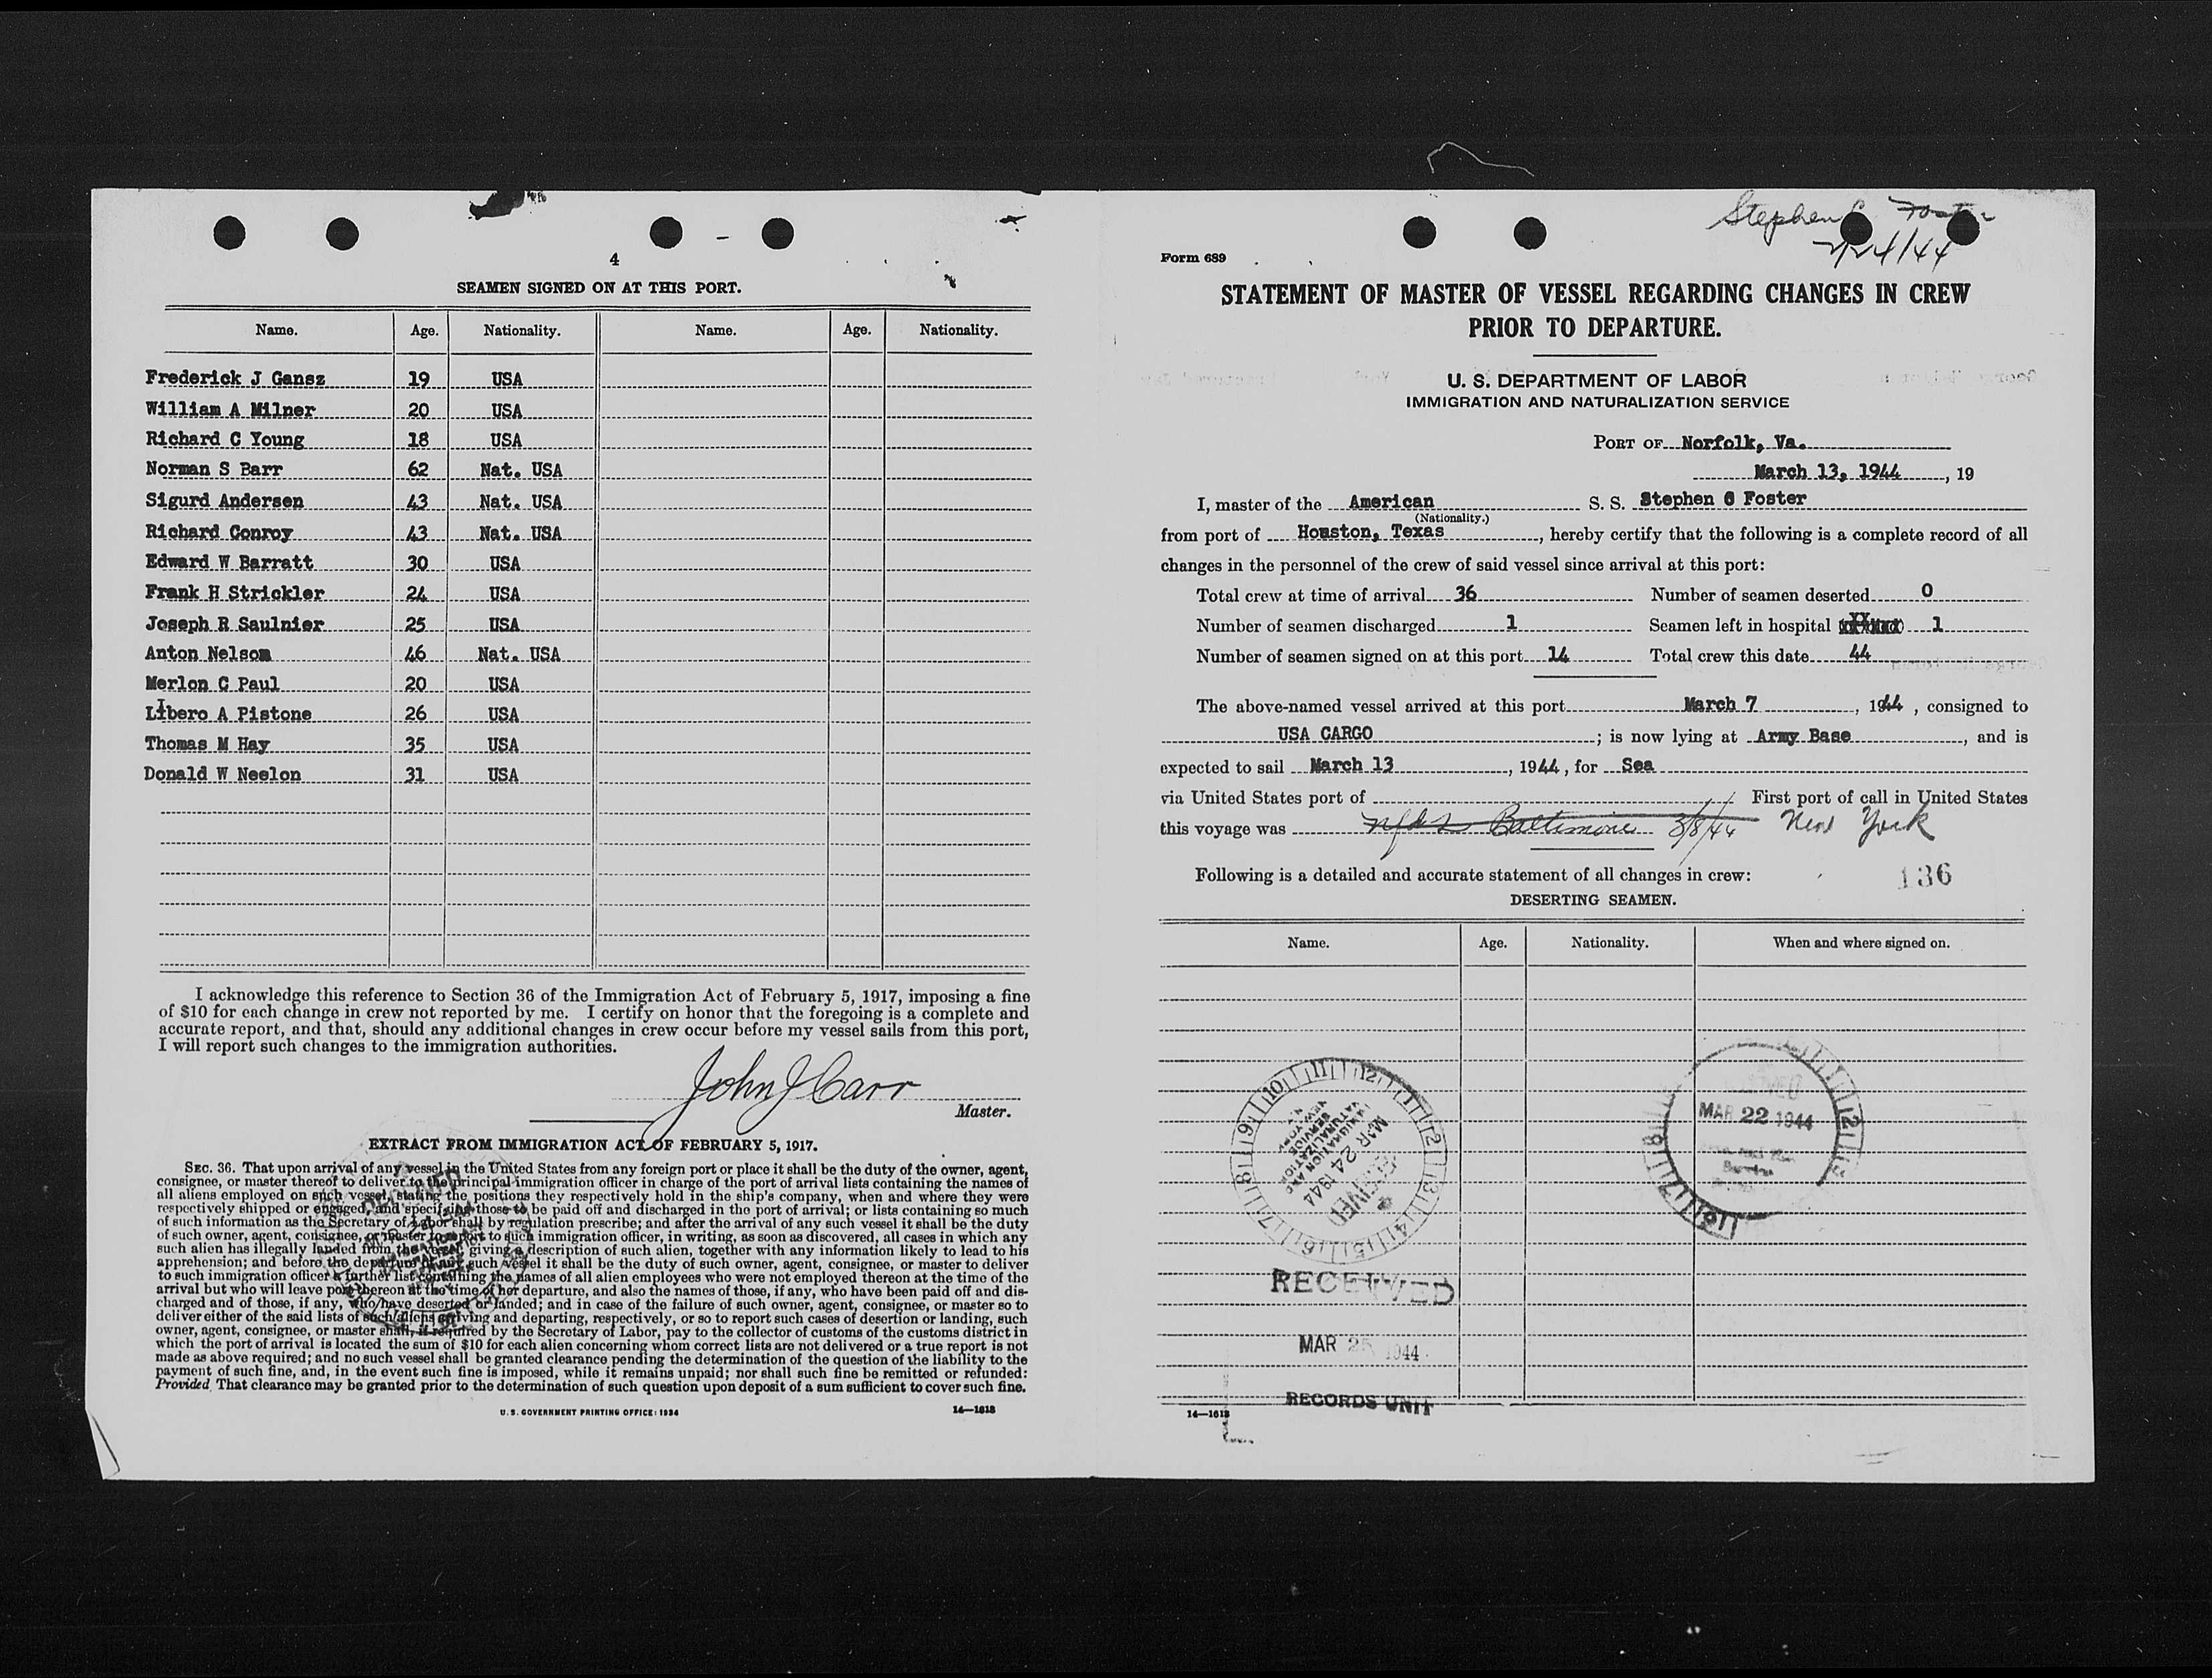 4
SEAMEN SIGNED ON AT THIS PORT.
Name. Age. Nationality. Name. Age. Nationality.
Frederick J Gansz 19 USA
William A Milner 20 USA
Richard C Young 18 USA
Norman S Barr 62 Nat. USA
Sigurd Andersen 43 Nat. USA
Richard Conroy 43 Nat. USA
Edward W Barratt 30 USA
Frank H Strickler 24 USA
Joseph R Saulnier 25 USA
Anton Nelson 46 Nat. USA
Merlon C Paul 20 USA
Libero A Pistone 26 USA
Thomas M Hay 35 USA
Donald W Neelon 31 USA
I acknowledge this reference to Section 36 of the Immigration Act of February 5, 1917, imposing a fine
of $10 for each change in crew not reported by me. I certify on honor that the foregoing is a complete and
accurate report, and that, should any additional changes in crew occur before my vessel sails from this port,
I will report such changes to the immigration authorities.
John J Carr
Master.
EXTRACT FROM IMMIGRATION ACT OF FEBRUARY 5, 1917.
SEC. 36. That upon arrival of any vessel in the United States from any foreign port or place it shall be the duty of the owner, agent,
consignee, or master thereof to deliver to the principal immigration officer in charge of the port of arrival lists containing the names of
all aliens employed on such vessel, stating the positions they respectively hold in the ship's company, when and where they were
respectively shipped or engaged, and specifying those to be paid off and discharged in the port of arrival; or lists containing so much
of such information as the Secretary of Labor shall by regulation prescribe; and after the arrival of any such vessel it shall be the duty
of such owner, agent, consignee, or master to report to such immigration officer, in writing, as soon as discovered, all cases in which any
such alien has illegally landed from the vessel, giving a description of such alien, together with any information likely to lead to his
apprehension; and before the departure of any such vessel it shall be the duty of such owner, agent, consignee, or master to deliver
to such immigration officer a further list containing the names of all alien employees who were not employed thereon at the time of the
arrival but who will leave port thereon at the time of her departure, and also the names of those, if any, who have been paid off and dis-
charged and of those, if any, who have deserted or landed; and in case of the failure of such owner, agent, consignee, or master so to
deliver either of the said lists of such aliens arriving and departing, respectively, or so to report such cases of desertion or landing, such
owner, agent, consignee, or master shall, if required by the Secretary of Labor, pay to the collector of customs of the customs district in
which the port of arrival is located the sum of $10 for each alien concerning whom correct lists are not delivered or a true report is not
made as above required; and no such vessel shall be granted clearance pending the determination of the question of the liability to the
payment of such fine, and, in the event such fine is imposed, while it remains unpaid; nor shall such fine be remitted or refunded:
Provided, That clearance may be granted prior to the determination of such question upon deposit of a sum sufficient to cover such fine.
U. S. GOVERNMENT PRINTING OFFICE: 1934 14—1618
Stephen C Foster
/24/44
Form 689
STATEMENT OF MASTER OF VESSEL REGARDING CHANGES IN CREW
PRIOR TO DEPARTURE.
U. S. DEPARTMENT OF LABOR
IMMIGRATION AND NATURALIZATION SERVICE
PORT OF Norfolk, Va.
March 13, 1944, 19
I, master of the American S. S. Stephen C Foster
(Nationality.)
from port of Houston, Texas, hereby certify that the following is a complete record of all
changes in the personnel of the crew of said vessel since arrival at this port:
Total crew at time of arrival 36 Number of seamen deserted 0
Number of seamen discharged 1 Seamen left in hospital 1
Number of seamen signed on at this port 14 Total crew this date 44
The above-named vessel arrived at this port March 7, 1944, consigned to
USA CARGO; is now lying at Army Base, and is
expected to sail March 13, 1944, for Sea
via United States port of First port of call in United States
this voyage was Baltimore 3/8/44 New York
Following is a detailed and accurate statement of all changes in crew: 136
DESERTING SEAMEN.
Name. Age. Nationality. When and where signed on.
MAR 24 1944
IMMIGRATION AND
NATURALIZATION
SERVICE
NEW YORK
MAR 22 1944
RECEIVED
MAR 25 1944
RECORDS UNIT
14—1618